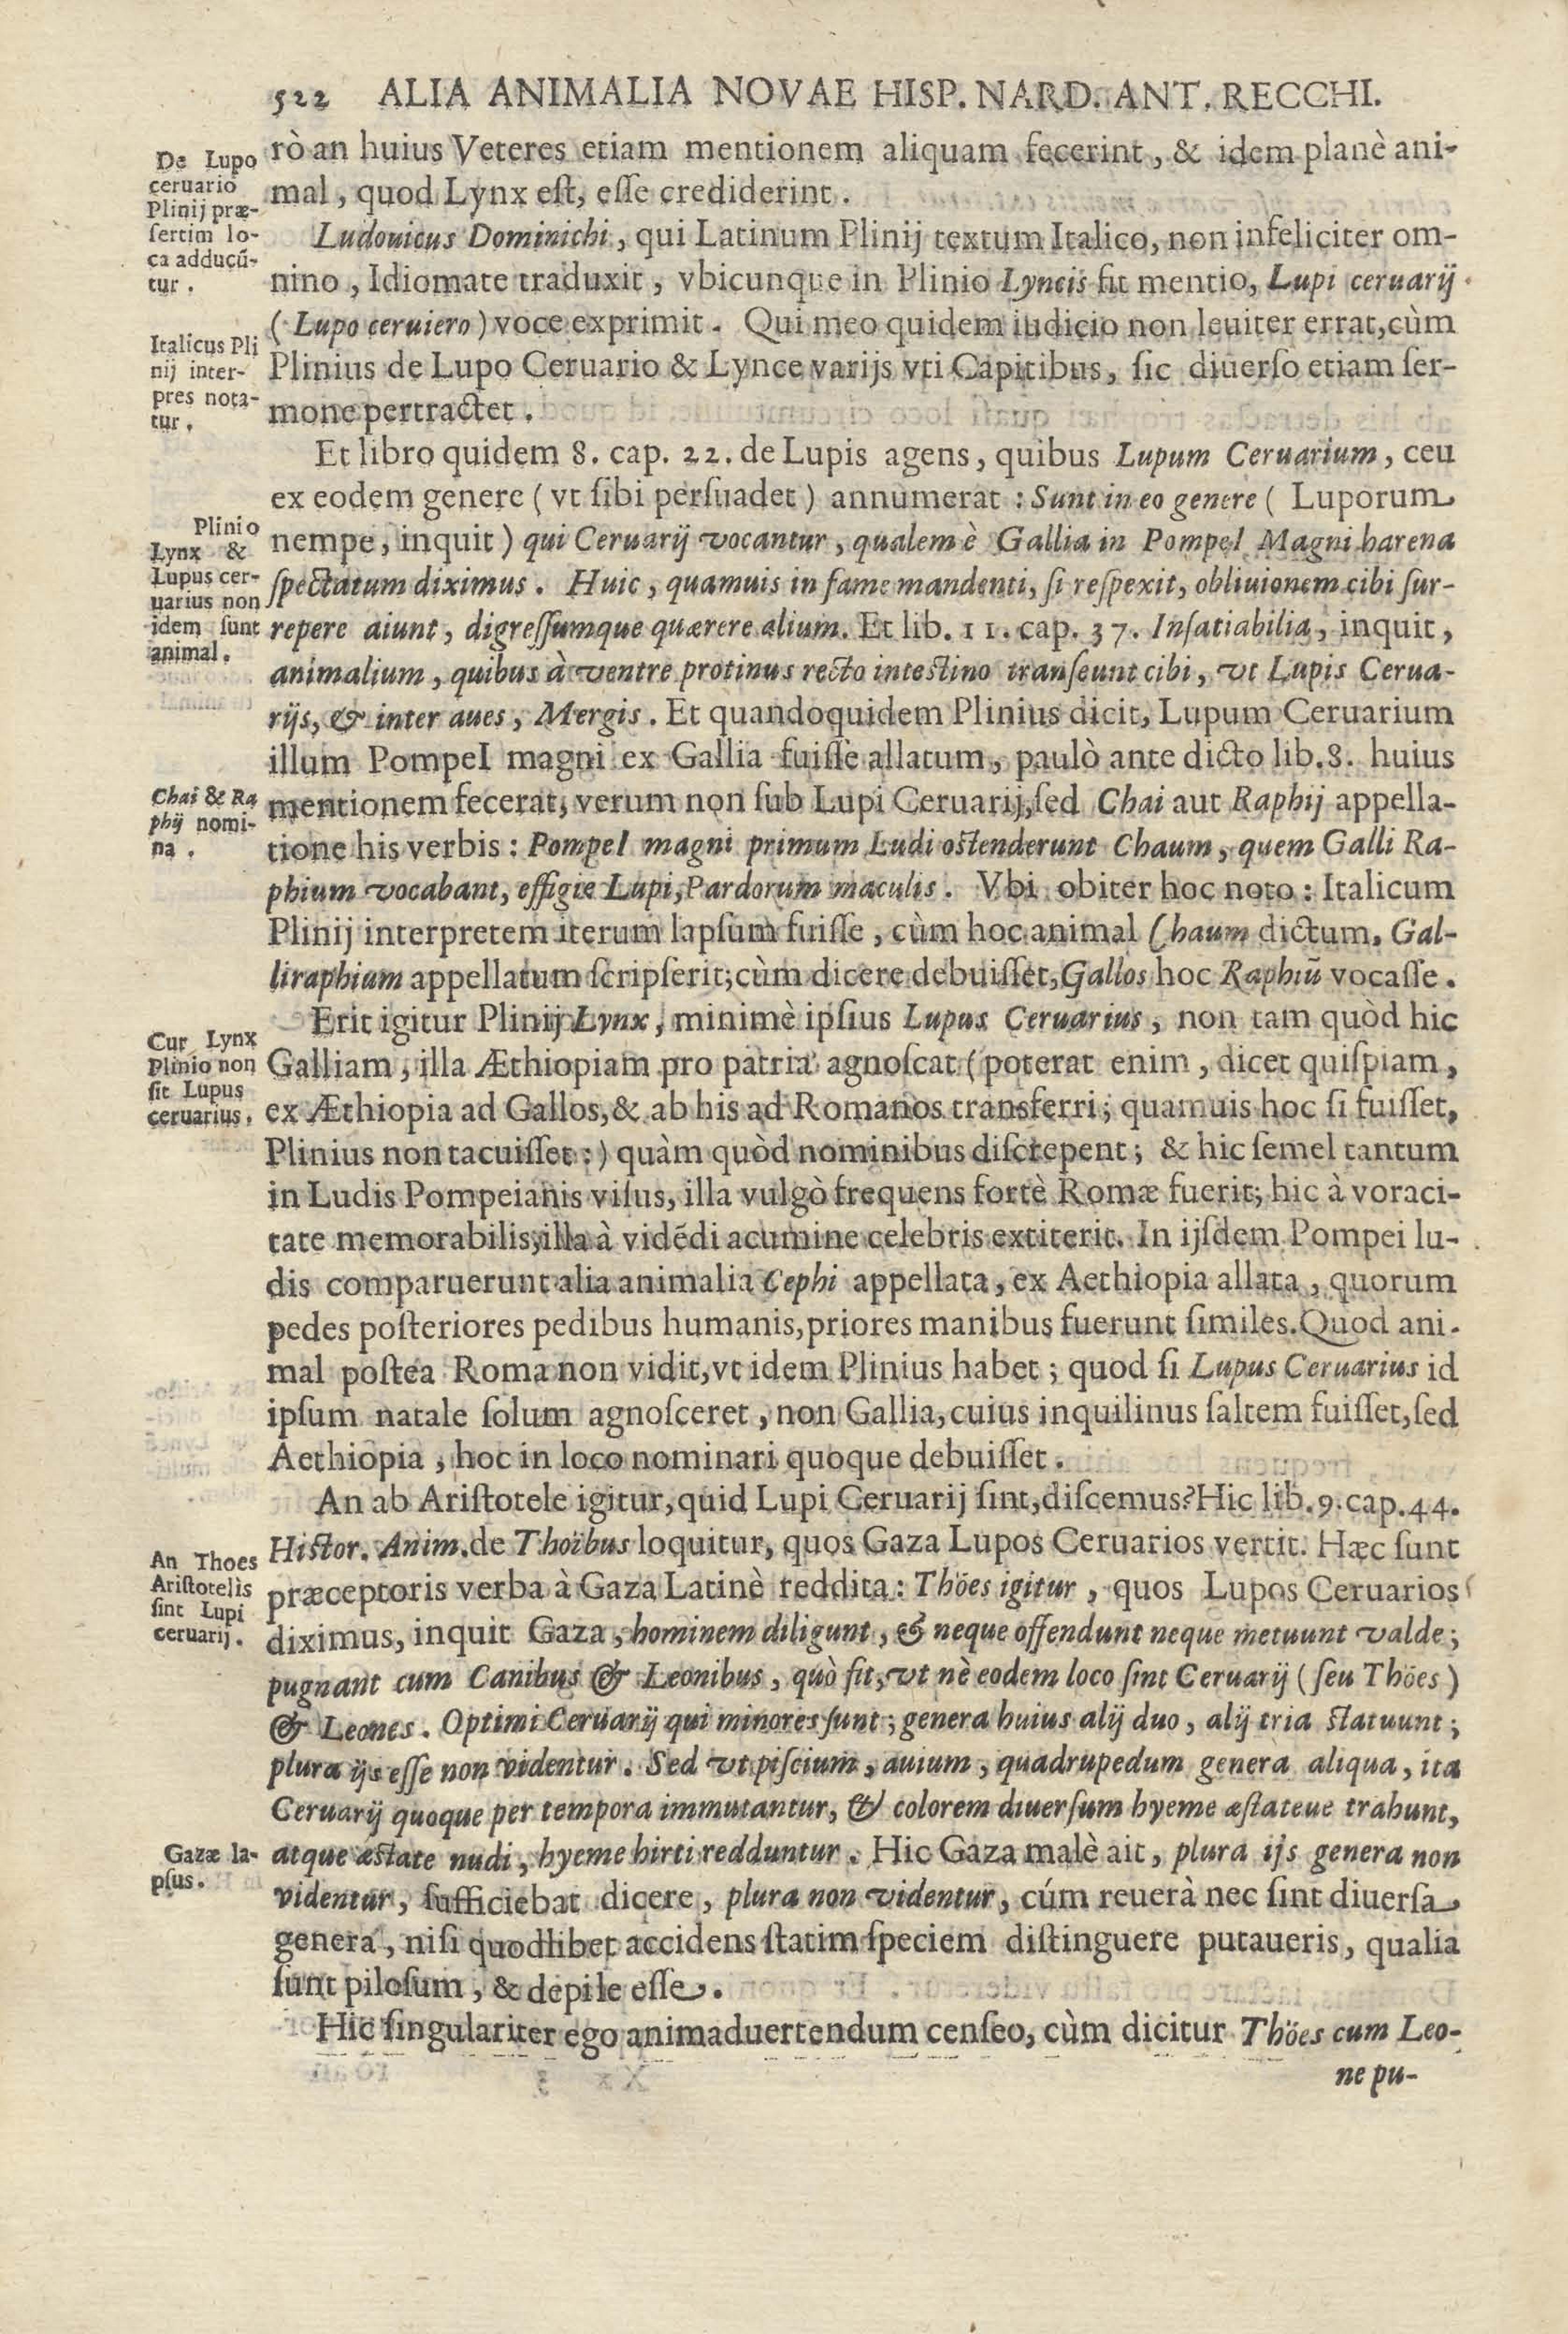 522 ALIA ANIMALIA NOVAE HISP. NARD. ANT. RECCHI.
De Lupo
ceruario
Plinij præ-
ſertim lo-
ca adducū-
tur.
rò an huius Veteres etiam mentionem aliquam fecerint, & idem planè ani-
mal, quod Lynx eſt, eſſe crediderint.
Ludouicus Dominichi, qui Latinum Plinij textum Italico, non infeliciter om-
nino, Idiomate traduxit, vbicunque in Plinio Lyncis fit mentio, Lupi ceruarij
(Lupo ceruiero) voce exprimit. Qui meo quidem iudicio non leuiter errat, cùm
Italicus Pli
nij inter-
pres nota-
tur.
Plinius de Lupo Ceruario & Lynce varijs vti Capitibus, ſic diuerſo etiam ſer-
mone pertractet.
Et libro quidem 8. cap. 22. de Lupis agens, quibus Lupum Ceruarium, ceu
ex eodem genere (vt ſibi perſuadet) annumerat: Sunt in eo genere (Luporum
Plinio
Lynx &
Lupus cer-
uarius non
idem ſunt
animal.
nempe, inquit) qui Ceruarij vocantur, qualem è Gallia in PompeI Magni harena
ſpectatum diximus. Huic, quamuis in fame mandenti, ſi reſpexit, obliuionem cibi ſur-
repere aiunt, digreſſumque quærere alium. Et lib. 11. cap. 37. Inſatiabilia, inquit,
animalium, quibus à ventre protinus recto inteſtino tranſeunt cibi, vt Lupis Cerua-
rijs, & inter aues, Mergis. Et quandoquidem Plinius dicit, Lupum Ceruarium
illum PompeI magni ex Gallia fuiſſe allatum, paulò ante dicto lib. 8. huius
Chai & Ra
phij nomi-
na.
mentionem fecerat, verum non ſub Lupi Ceruarij, ſed Chai aut Raphij appella-
tione his verbis: PompeI magni primum Ludi oſtenderunt Chaum, quem Galli Ra-
phium vocabant, effigie Lupi, Pardorum maculis. Vbi obiter hoc noto: Italicum
Plinij interpretem iterum lapſum fuiſſe, cùm hoc animal Chaum dictum, Gal-
liraphium appellatum ſcripſerit; cùm dicere debuiſſet, Gallos hoc Raphiū vocaſſe.
Erit igitur Plinij Lynx, minimè ipſius Lupus Ceruarius, non tam quòd hic
Cur Lynx
Plinio non
ſit Lupus
ceruarius.
Galliam, illa Æthiopiam pro patria agnoſcat (poterat enim, dicet quiſpiam,
ex Æthiopia ad Gallos, & ab his ad Romanos transferri; quamuis hoc ſi fuiſſet,
Plinius non tacuiſſet:) quàm quòd nominibus diſcrepent; & hic ſemel tantum
in Ludis Pompeianis viſus, illa vulgò frequens fortè Romæ fuerit; hic à voraci-
tate memorabilis, illa à vidēdi acumine celebris extiterit. In ijſdem Pompei lu-
dis comparuerunt alia animalia Cephi appellata, ex Aethiopia allata, quorum
pedes poſteriores pedibus humanis, priores manibus fuerunt ſimiles. Quod ani-
mal poſtea Roma non vidit, vt idem Plinius habet; quod ſi Lupus Ceruarius id
ipſum natale ſolum agnoſceret, non Gallia, cuius inquilinus ſaltem fuiſſet, ſed
Aethiopia, hoc in loco nominari quoque debuiſſet.
An ab Ariſtotele igitur, quid Lupi Ceruarij ſint, diſcemus? Hic lib. 9. cap. 44.
An Thoes
Ariſtotelis
ſint Lupi
ceruarij.
Hiſtor. Anim. de Thoïbus loquitur, quos Gaza Lupos Ceruarios vertit. Hæc ſunt
præceptoris verba à Gaza Latinè reddita: Thöes igitur, quos Lupos Ceruarios
diximus, inquit Gaza, hominem diligunt, & neque offendunt neque metuunt valde;
pugnant cum Canibus & Leonibus, quò fit, vt nè eodem loco ſint Ceruarij (ſeu Thöes)
& Leones. Optimi Ceruarij qui minores ſunt; genera huius alij duo, alij tria ſtatuunt;
plura ijs eſſe non videntur. Sed vt piſcium, auium, quadrupedum genera aliqua, ita
Ceruarij quoque per tempora immutantur, & colorem diuerſum hyeme æſtateue trahunt,
Gazæ la-
pſus.
atque æſtate nudi, hyeme hirti redduntur. Hic Gaza malè ait, plura ijs genera non
videntur, ſufficiebat dicere, plura non videntur, cúm reuerà nec ſint diuerſa
genera, niſi quodlibet accidens ſtatim ſpeciem diſtinguere putaueris, qualia
ſunt piloſum, & depile eſſe.
Hic ſingulariter ego animaduertendum cenſeo, cùm dicitur Thöes cum Leo-
ne pu-